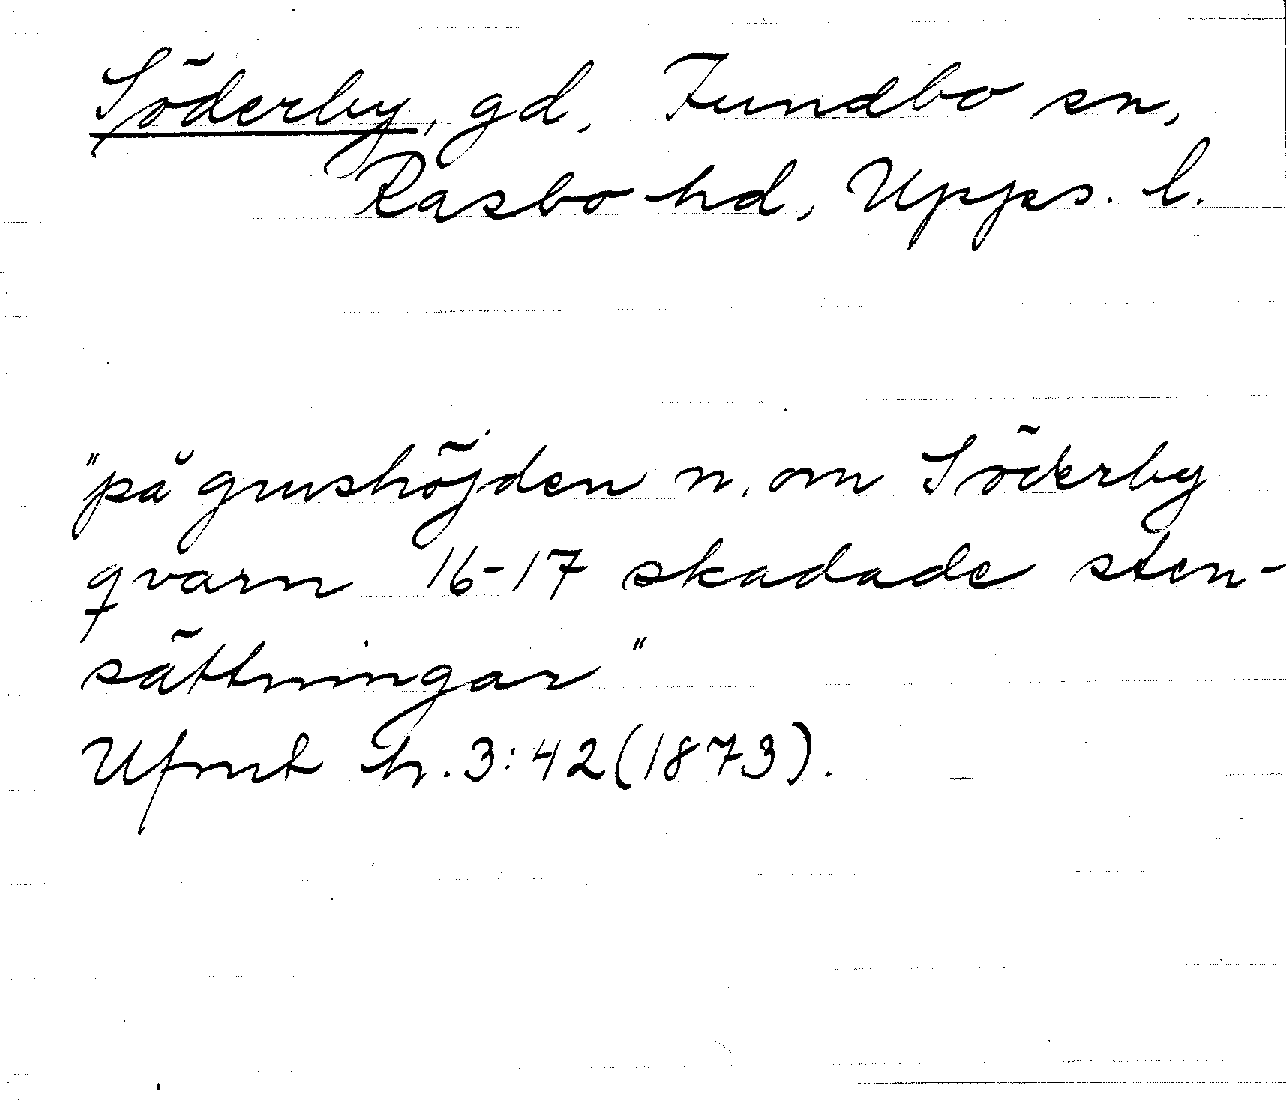 Söderby, gd, Tundbo sn,
Rasbo hd, Upps. l.
"på grushöjden n. om Söderby
qvarn 16-17 skadade sten-
sättningar"
Ufmt h. 3:42 (1873).